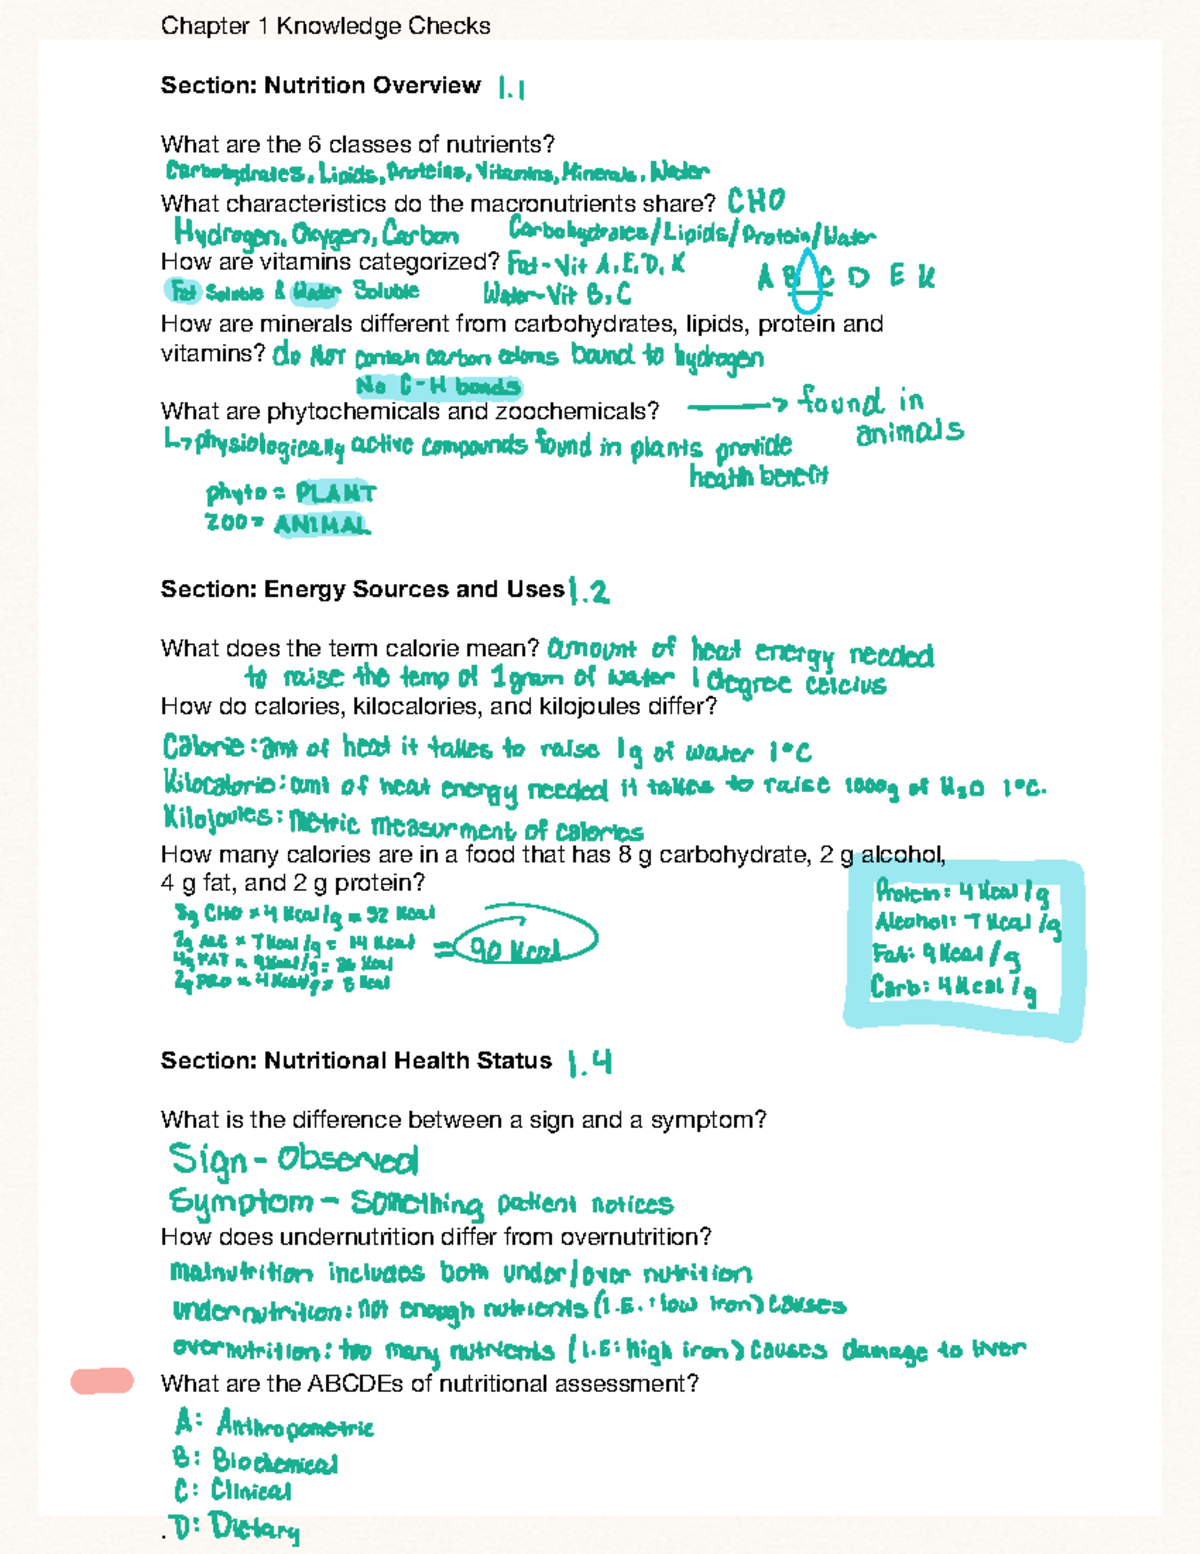 Chapter 1 Knowledge Checks
Section: Nutrition Overview 1.1
What are the 6 classes of nutrients?
Carbohydrates, Lipids, Proteins, Vitamins, Minerals, Water
What characteristics do the macronutrients share? CHO
Hydrogen, Oxygen, Carbon Carbohydrates/Lipids/Protein/Water
How are vitamins categorized? Fat-Vit A, E, D, K
A B C D E K
Fat Soluble & Water Soluble Water-Vit B, C
How are minerals different from carbohydrates, lipids, protein and
vitamins? do NOT contain carbon atoms bound to hydrogen
No C-H bonds
What are phytochemicals and zoochemicals? → found in
animals
↳ physiologically active compounds found in plants provide
health benefit
phyto = PLANT
zoo = ANIMAL
Section: Energy Sources and Uses 1.2
What does the term calorie mean? amount of heat energy needed
to raise the temp of 1 gram of water 1 degree celcius
How do calories, kilocalories, and kilojoules differ?
Calorie: amt of heat it takes to raise 1g of water 1°C
Kilocalorie: amt of heat energy needed it takes to raise 1000g of H₂O 1°C.
Kilojoules: metric measurment of calories
How many calories are in a food that has 8 g carbohydrate, 2 g alcohol,
4 g fat, and 2 g protein?
8g CHO × 4 Kcal/g = 32 Kcal
2g ALC × 7 Kcal/g = 14 Kcal = 90 Kcal
4g FAT × 9 Kcal/g = 36 Kcal
2g PRO × 4 Kcal/g = 8 Kcal
Protein: 4 Kcal/g
Alcohol: 7 Kcal/g
Fat: 9 Kcal/g
Carb: 4 Kcal/g
Section: Nutritional Health Status 1.4
What is the difference between a sign and a symptom?
Sign - Observed
Symptom - Something patient notices
How does undernutrition differ from overnutrition?
malnutrition includes both under/over nutrition
undernutrition: not enough nutrients (I.E.: low iron) causes
overnutrition: too many nutrients (I.E: high iron) causes damage to liver
What are the ABCDEs of nutritional assessment?
A: Anthropometric
B: Biochemical
C: Clinical
. D: Dietary